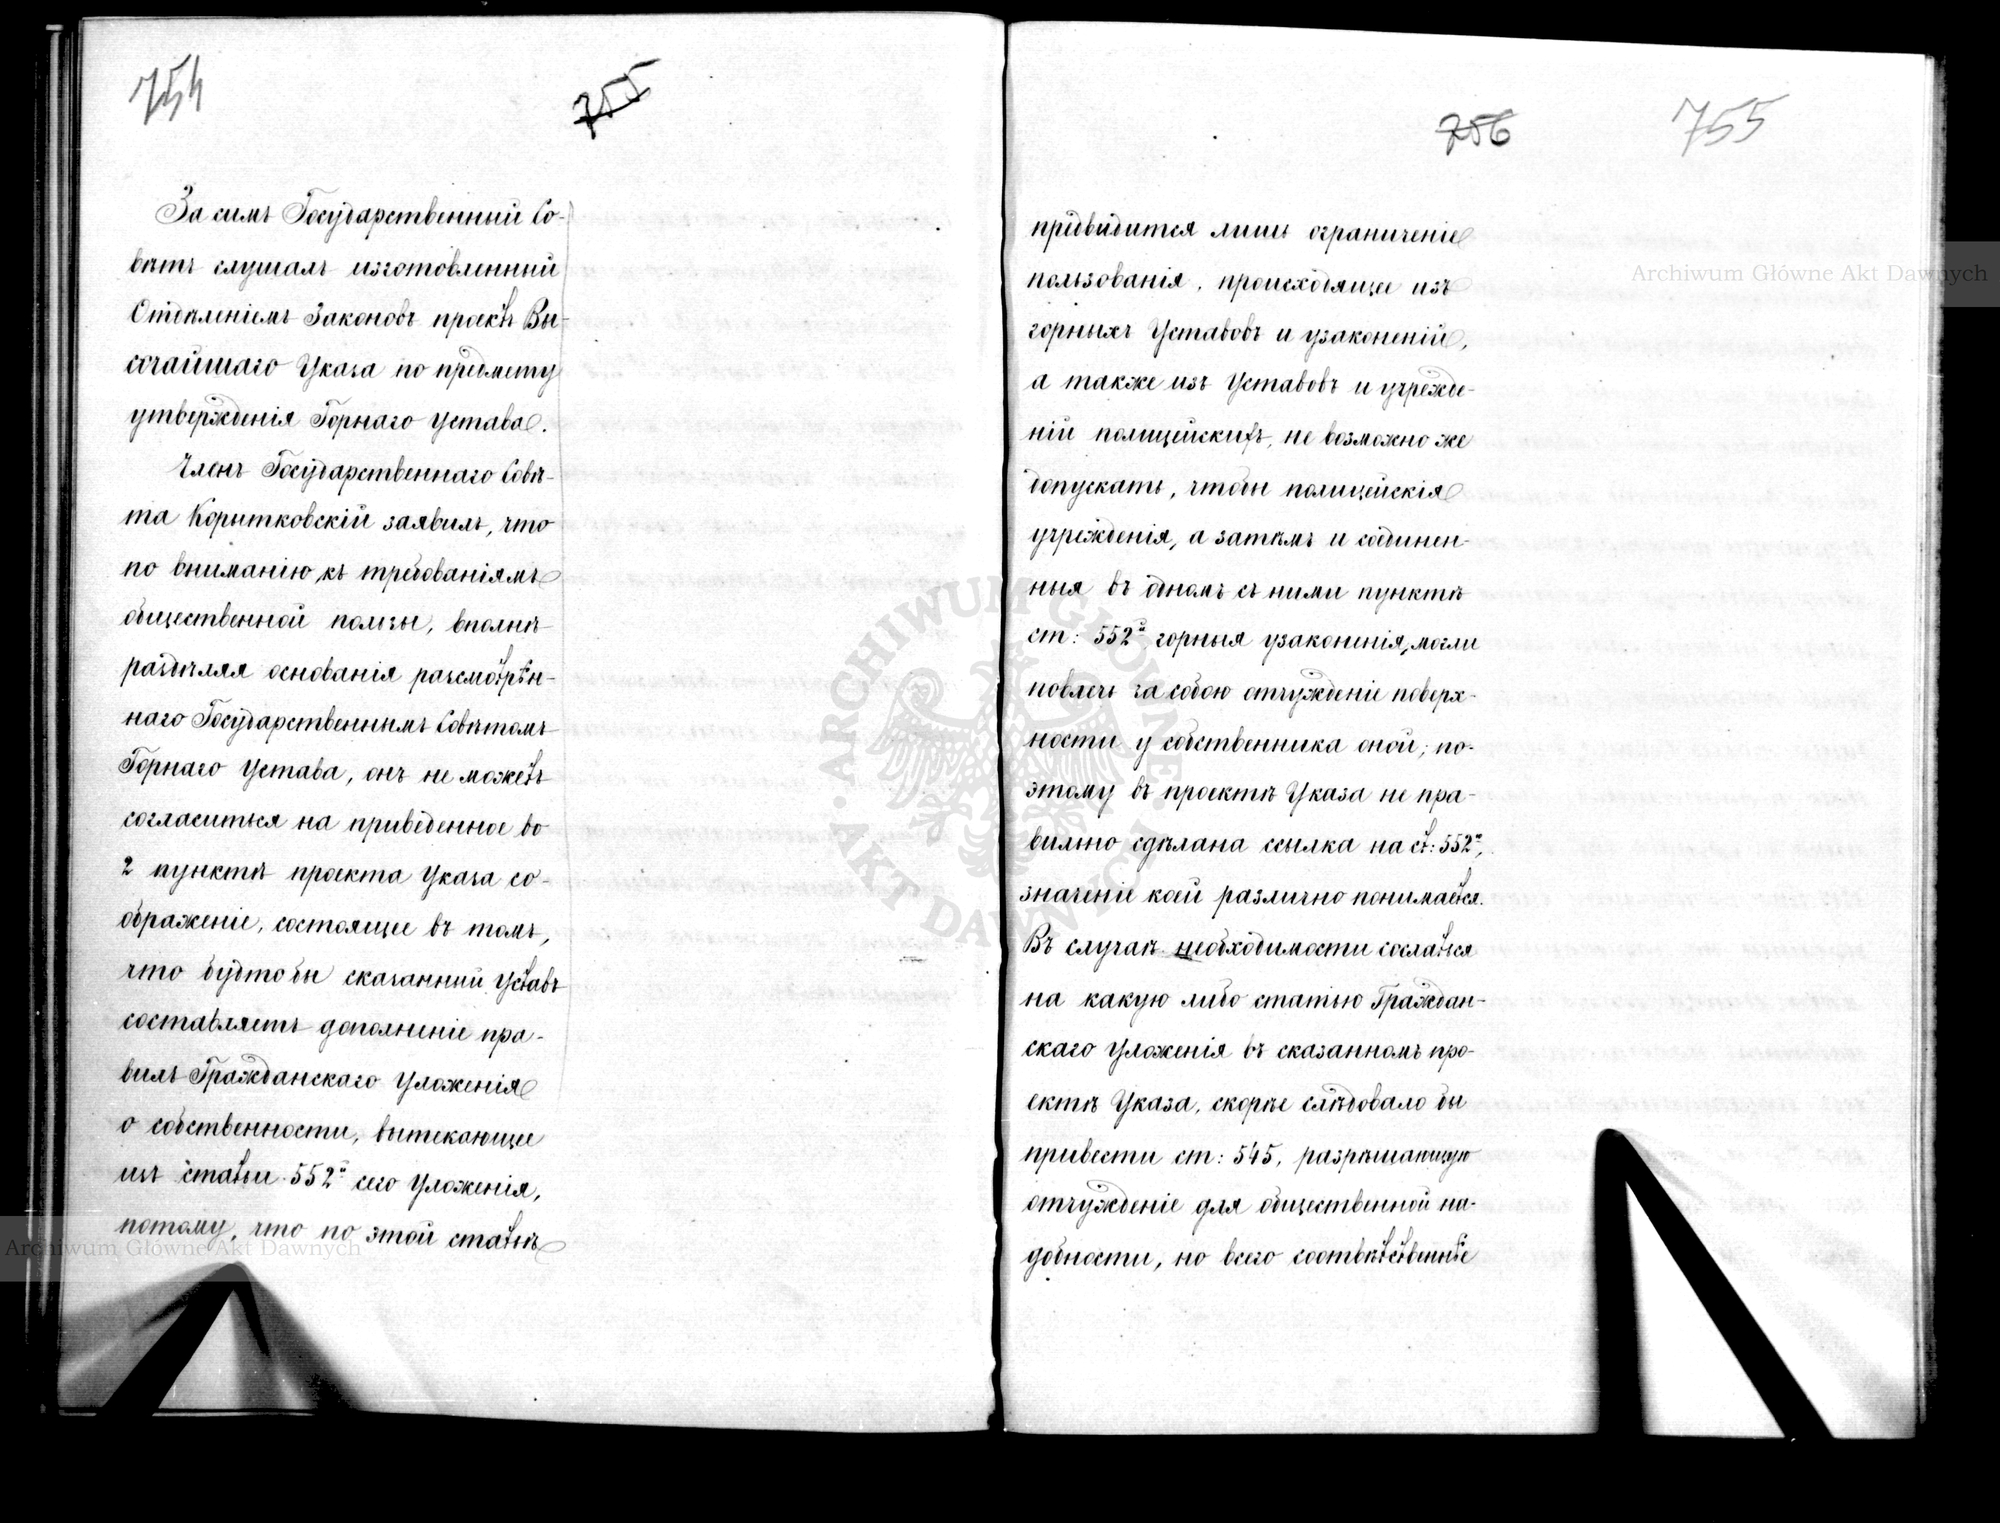 754
755
За симъ Государственный Со-
вѣтъ слушалъ изготовленный
Отдѣленіемъ Законовъ проектъ Вы-
сочайшаго Указа по предмету
утвержденія Горнаго Устава.
Членъ Государственнаго Совѣ-
та Корытковскій заявилъ, что
по вниманію къ требованіямъ
общественной пользы, вполнѣ
раздѣляя основанія разсмотрѣн-
наго Государственнымъ Совѣтомъ
Горнаго Устава, онъ не можетъ
согласиться на приведенное во
2 пунктѣ проекта Указа со-
ображеніе, состоящее въ томъ,
что будто бы сказанный Уставъ
составляетъ дополненіе пра-
вилъ Гражданскаго Уложенія
о собственности, вытекающее
изъ статьи 552й сего Уложенія,
потому, что по этой статьѣ
756
755
предвидится лишь ограниченіе
пользованія, происходящее изъ
горныхъ Уставовъ и узаконеній,
а также изъ Уставовъ и учрежде-
ній полицейскихъ, не возможно же
допускать, чтобы полицейскія
учрежденія, а затѣмъ и соединен-
ныя въ одномъ съ ними пунктѣ
ст: 552й горныя узаконенія, могли
повлечь за собою отчужденіе поверх-
ности у собственника оной; по-
этому въ проектѣ Указа не пра-
вильно сдѣлана ссылка на ст: 552ю,
значеніе коей различно понимается.
Въ случаѣ необходимости сослаться
на какую либо статью Граждан-
скаго Уложенія въ сказанномъ про-
ектѣ Указа, скорѣе слѣдовало бы
привести ст: 545, разрѣшающую
отчужденіе для общественной на-
добности, но всего соотвѣтственнѣе
Archiwum Główne Akt Dawnych
ARCHIWUM GŁÓWNE AKT DAWNYCH
Archiwum Główne Akt Dawnych